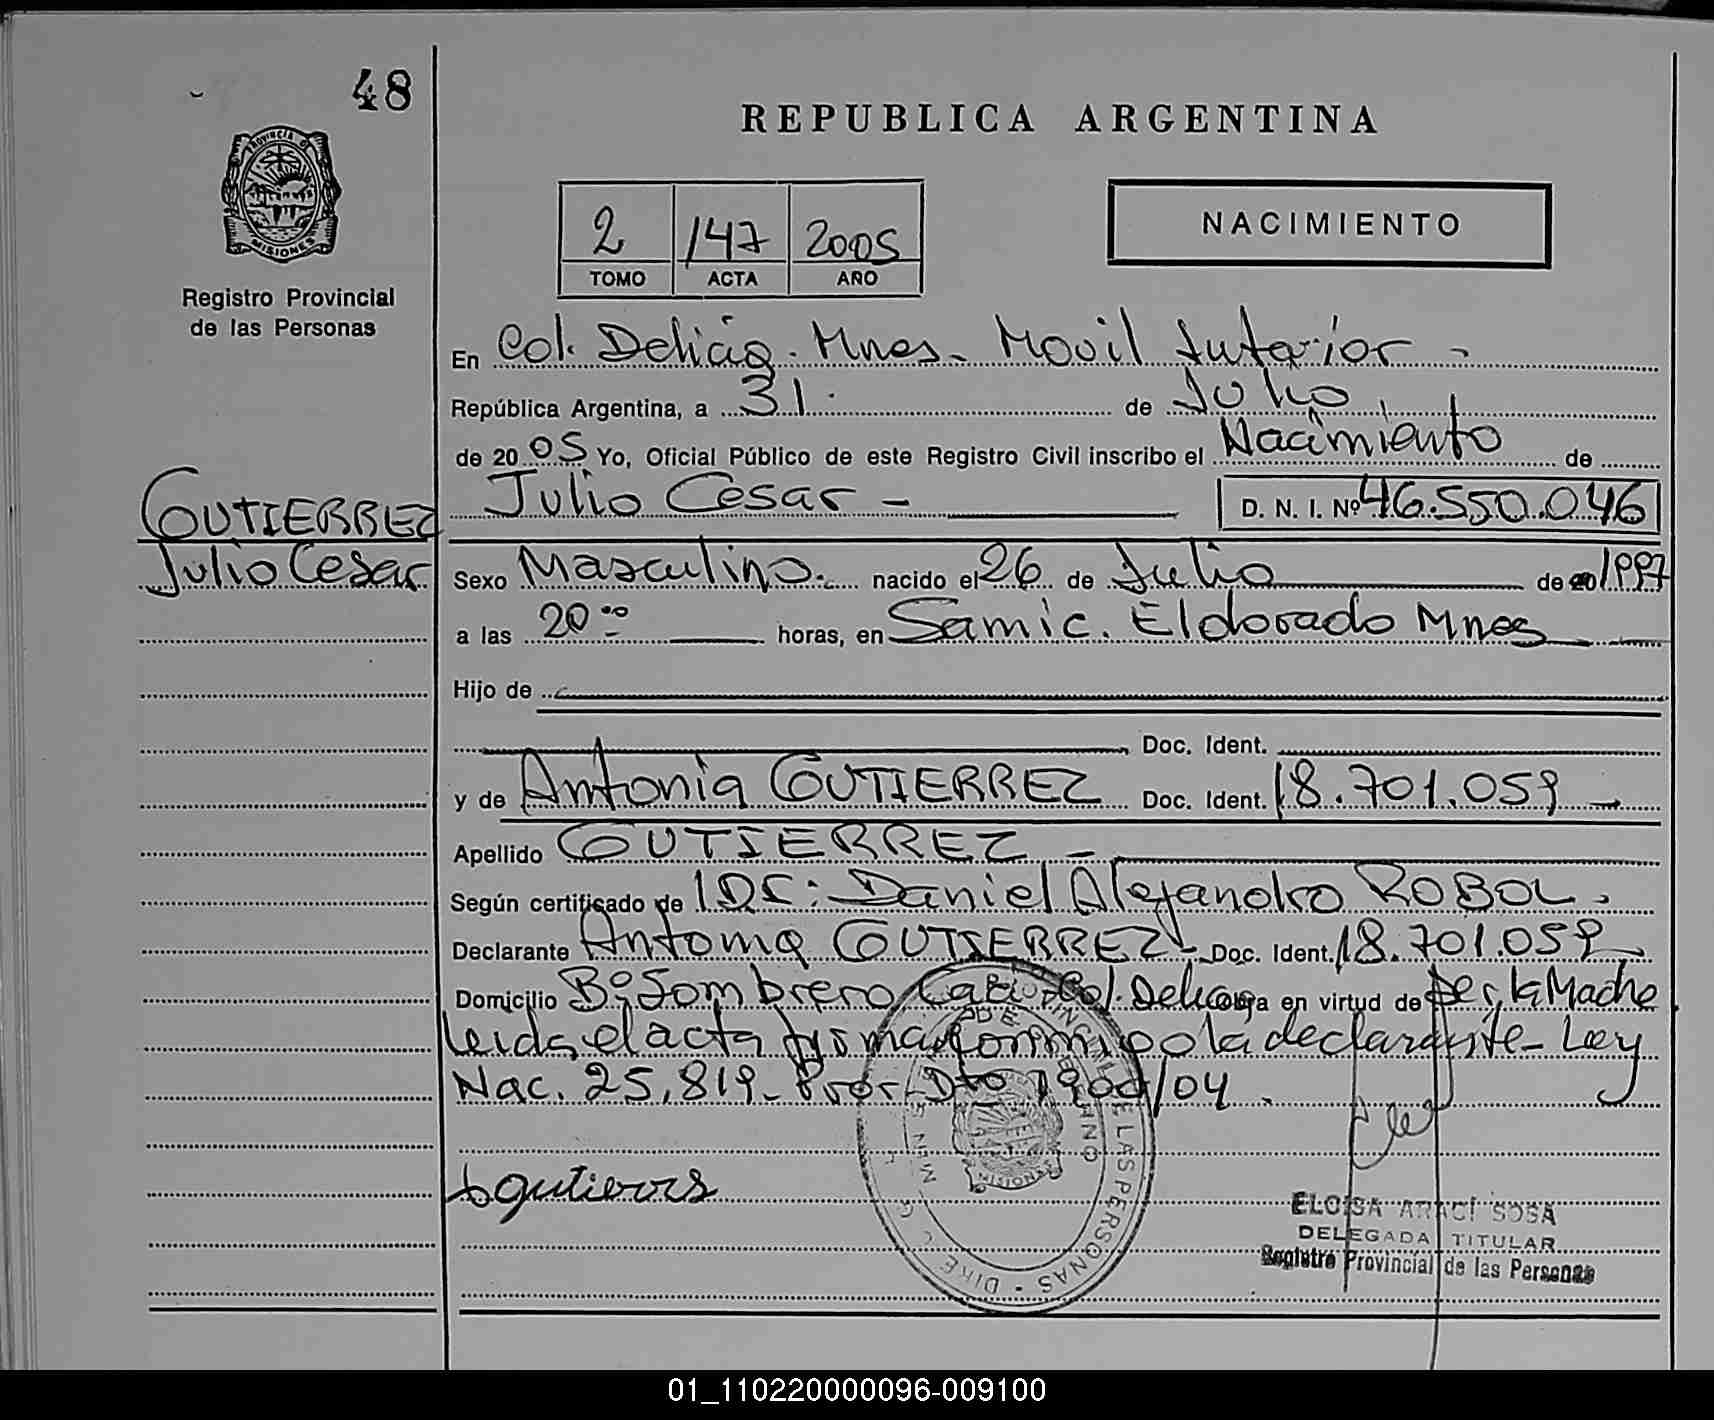 48
REPUBLICA ARGENTINA
PROVINCIA D
MISIONES
Registro Provincial
de las Personas
2 /47 2005
TOMO ACTA AÑO
NACIMIENTO
En Col. Delicia. Mnes. Movil Interior -
República Argentina, a 31. de Julio
de 2005 Yo, Oficial Público de este Registro Civil inscribo el Nacimiento de
GUTIERREZ
Julio Cesar
Julio Cesar - D. N. I. Nº 46.550.046
Sexo Masculino. nacido el 26 de Julio de 20 1997
a las 20 ºº horas, en Samic. Eldorado Mnes
Hijo de
Doc. Ident.
y de Antonia GUTIERREZ Doc. Ident. 18.701.059 -
Apellido GUTIERREZ -
Según certificado de Daniel Alejandro ROBOL.
Declarante Antonia GUTIERREZ - Doc. Ident. 18.701.059
Domicilio Bº Sombrero Col. Delicia obra en virtud de ser la Madre
leida el acta firma conmigo la declarante - Ley
Nac. 25.819 - Pror Dto 1900/04.
Gutierres
ELOISA ARACI SOSA
DELEGADA TITULAR
Registro Provincial de las Personas
01_110220000096-009100